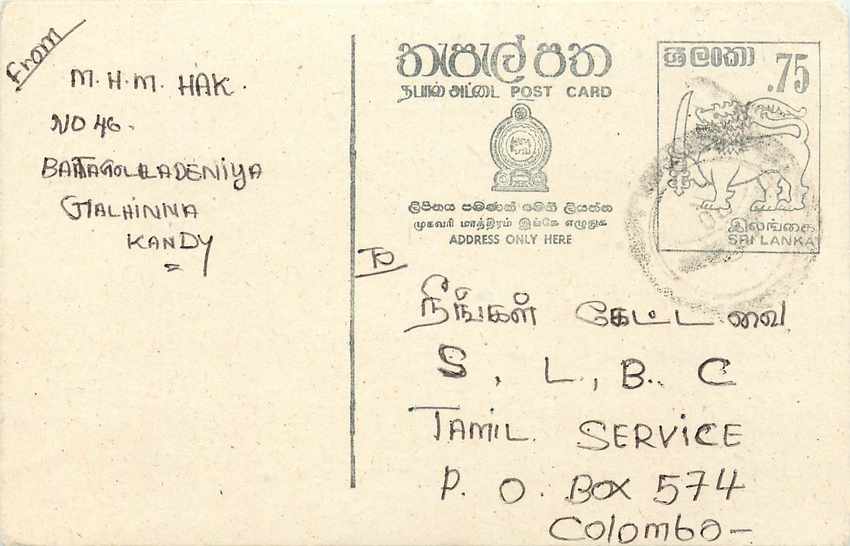 From
M. H. M. HAK.
NO 46.
BATTAGOLLADENIYA
GALHINNA
KANDY
තැපැල් පත
தபால் அட்டை POST CARD
ලිපිනය පමණක් මෙහි ලියන්න
முகவரி மாத்திரம் இங்கே எழுதுக
ADDRESS ONLY HERE
ශ්‍රී ලංකා
.75
இலங்கை
SRI LANKA
To
நீங்கள் கேட்டவை
S, L, B. C
TAMIL SERVICE
P. O. BOX 574
Colombo-